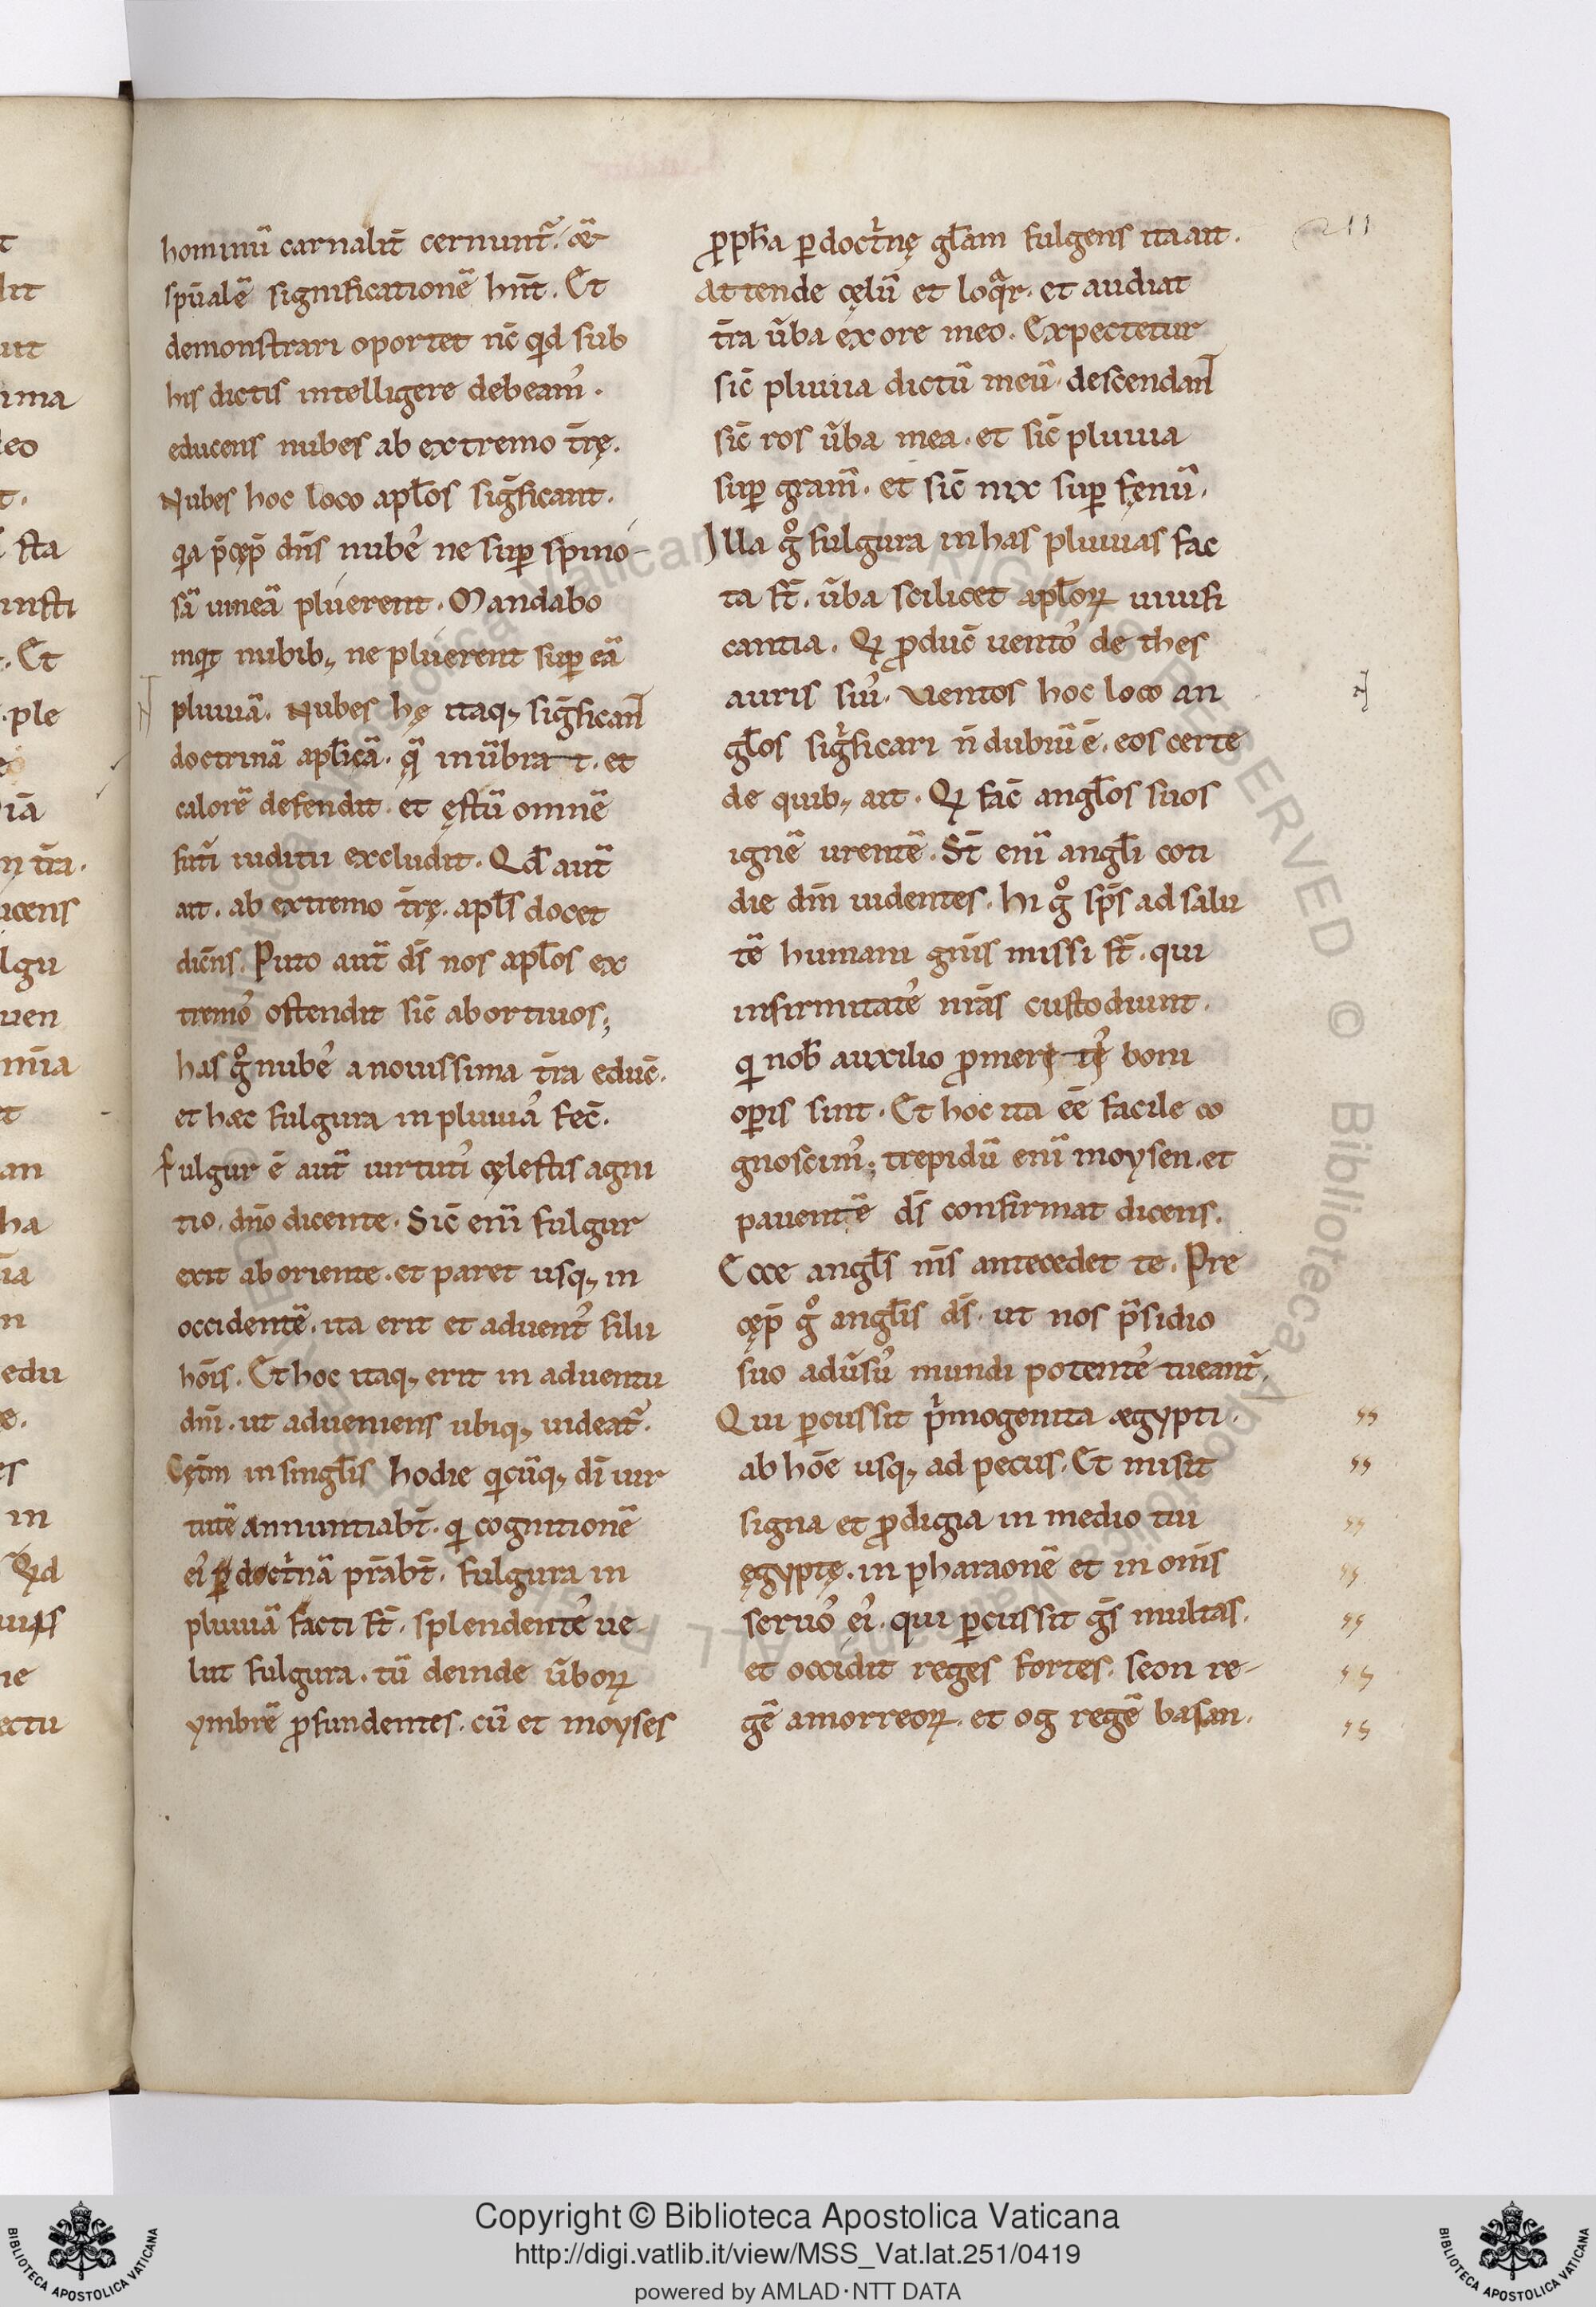 hominū carnalit̄ cernunt᷑. &
sp̄ualē significationē hn̄t. Et
demonstrari oportet nc̄ qd sub
his dictis intelligere debeam᾽.
educens nubes ab extremo t̄rę.
Nubes hoc loco apl̄os sig̅ficant.
qa p̄cęp̄ dn̄s nube᾽ ne sup spino-
sā uineā pluerent. Mandabo
inqt nubib; ne pluerent sup eā
pluuiā. Nubes hę itaq; sig̅ficant
doctrinā apl̄icā. qā inūbrat. et
calorē defendit. et ęstū omnē
futi iuditii excludit. Qd̄ aut̄
ait. ab extremo t̄rę. apl̄s docet
dicn̄s. Puto aut̄ ds̄ nos apl̄os ex
tremo᾽ ostendit sic̄ abortiuos;
has gͦ nube᾽ a nouissima t̄ra educ̄.
et hæc fulgura in pluuia᾽ fec̄.
Fulgur ē aut̄ uirtuti᾽ cęlestis agni
tio. dn̄o dicente. Sic̄ enī fulgur
exit ab oriente. et paret usq; in
occidentē. ita erit et aduent᾽ filii
hōis. Et hoc itaq; erit in aduentu
dn̄i. ut adueniens ubiq; uideat᷑.
Cęt̄m in singl̄is hodie qicūq; dī uir
tutē annuntiabt̄. qi cognitionē
ei᾽ p doct̄nā p̄rabt̄. fulgura in
pluuiā facti st̄. splendente᾽ ue-
lut fulgura. tū deinde ūboꝝ
ymbrē ꝓfundentes. cū et moyses
ꝓph̄a p doct̄nę gl̄am fulgens ita ait.
Attende cęlū et loqar. et audiat
t̄ra ūba ex ore meo. Expectetur
sic̄ pluuia dictū meū. descendant
sic̄ ros ūba mea. et sic̄ pluuia
sup gram̄. et sic̄ nix sup fęnū.
Illa gͦ fulgura in has pluuias fac
ta st̄. ūba scilicet apl̄oꝝ uiuifi
cantia. Qi ꝓduc̄ uento᾽ de thes
auris sui᾽. Uentos hoc loco an
gl̄os sig̅ficari n̄ dubiū ē. eos certe
de quib; ait. Qi fac̄ angl̄os suos
ignē urentē. St̄ enī angl̄i coti
die dn̄m uidentes. hi gͦ sp̄s ad salu
tē humani gn̄is missi st̄. qui
infirmitate᾽ nr̄as custodiunt.
qi nob̄ auxilio ꝓmerę te᾽ boni
opis sint. Et hoc ita eē facile co
gnoscim᾽; trepidū enī moysen. et
pauentē ds̄ confirmat dicens.
Ecce angl̄s m̄s antecedet te. Pre
cęp̄ gͦ angl̄is ds̄. ut nos p̄sidio
suo adūsu᾽ mundi potente᾽ tueant᷑.
Qui pcussit p̄mogenita ægypti.
ab hōe usq; ad pecus. Et misit
signa et ꝓdigia in medio tui
ęgyptę. in pharaonē et in om̄s
seruo᾽ ei᾽. qui pcussit gs̄ multas.
et occidit reges fortes. seon re-
gē amorreoꝝ. et og regē basan.
211
Copyright © Biblioteca Apostolica Vaticana
http://digi.vatlib.it/view/MSS_Vat.lat.251/0419
powered by AMLAD·NTT DATA
BIBLIOTECA APOSTOLICA VATICANA
BIBLIOTECA APOSTOLICA VATICANA